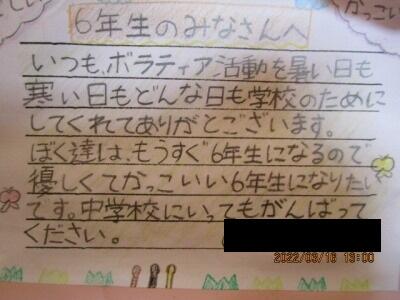 6年生のみなさんへ
いつも、ボラティア活動を暑い日も
寒い日もどんな日も学校のために
してくれてありがとございます。
ぼく達は、もうすぐ6年生になるので
優しくてかっこいい6年生になりたい
です。中学校にいってもがんばって
ください。
2022/03/16 13:00